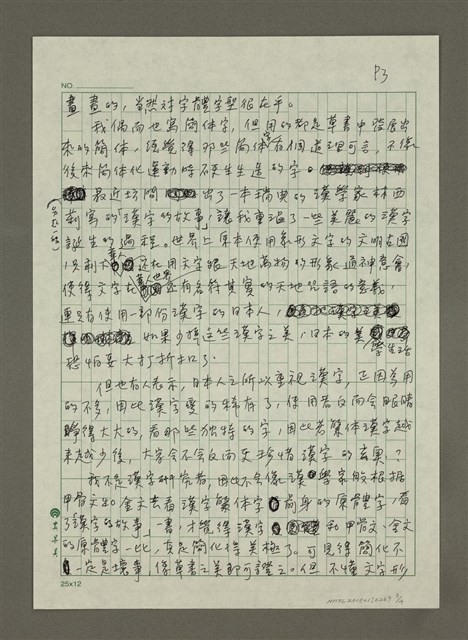 P3
NO.
畫畫的,當然對字體字型很在乎。
我偶而也寫簡体字,但用的都是草書中發展出
來的簡体,總覺得那些簡体字有個道理可言,不像
後來簡体化運動時硬生生造的字。
最近坊間出了一本瑞典的漢學家林西
莉寫的「漢字的故事」,讓我重溫了一些美麗的漢字
誕生的過程。世界上原本使用象形文字的文明古國
只剩大華人還在用文字跟天地萬物的形象通神意會,
使得文字在華人世界還有名符其實的天地咒語的意義,
連只有使用一部份漢字的日本人,
如果少掉這些漢字之美,日本的美學生活
恐怕要大打折扣了。
但也有人表示,日本人之所以重視漢字,正因為用
的不多,因此漢字變的稀有了,使用者反而會眼睛
睜得大大的看那些獨特的字,因此當繁体漢字越
來越少後,大家會不會反而更珍惜漢字的玄奧?
我不是漢字研究者,因此不會像漢學家般根據
甲骨文或金文去看漢字繁体字前身的原體字,看
了漢字的故事一書,才覺得漢字和甲骨文、金文
的原體字一比,有些簡化得美極了。可見得簡化不
一定是壞事,像草書之美即可證之。但不懂文字形
25x12